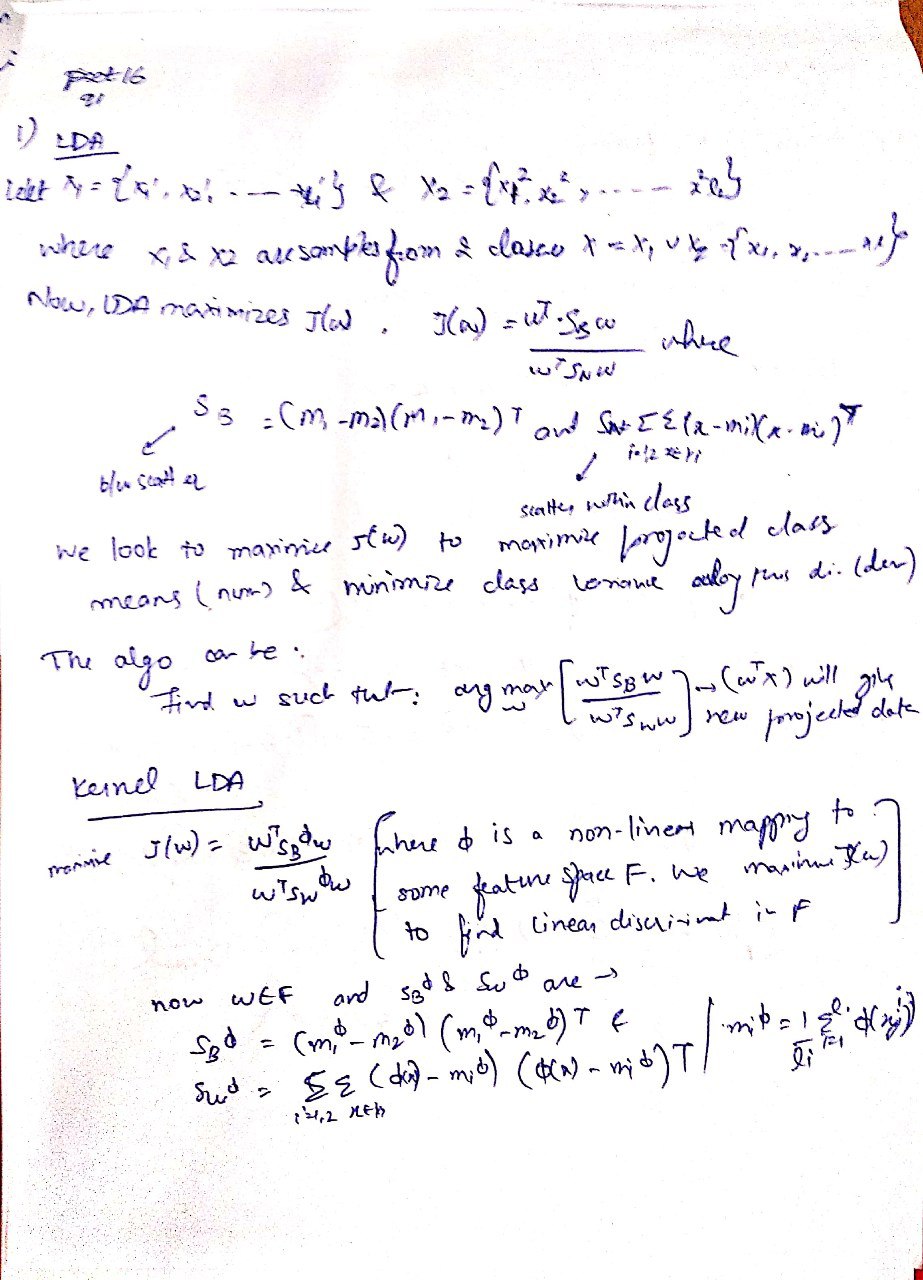 16
1) LDA
X₁ = {x₁¹, x₂¹, ---- } & X₂ = {x₁², x₂², ----- }
where x₁ & x2 are samples from 2 classes X = X₁ ∪ X₂ = {x₁, x₂, ---- }
Now, LDA maximizes J(w). J(w) = wᵀ.S_B w / wᵀ S_N w where
S_B = (m₁ - m₂)(m₁ - m₂)ᵀ and S_N = Σ Σ (x - mi)(x - mi)ᵀ
i=1,2 x∈Xi
b/w scatter
scatter within class
we look to maximise J(w) to maximize projected class
means (num) & minimize class di. (den)
The algo can be :
Find w such that: arg max w [ wᵀ S_B w / wᵀ S_w w ] → (wᵀx) will give
new projected data
Kernel LDA
maximise J(w) = wᵀ S_B^ϕ w / wᵀ S_w^ϕ w [where ϕ is a non-linear mapping to
some feature space F. we maximise J(w)
to find linear discriminant in F]
now w∈F and S_B^ϕ & S_w^ϕ are →
S_B^ϕ = (m₁^ϕ - m₂^ϕ) (m₁^ϕ - m₂^ϕ)ᵀ &
S_w^ϕ = Σ Σ (ϕ(x) - mi^ϕ) (ϕ(x) - mi^ϕ)ᵀ | mi^ϕ = 1/li Σ ϕ(xj^i)
i=1,2